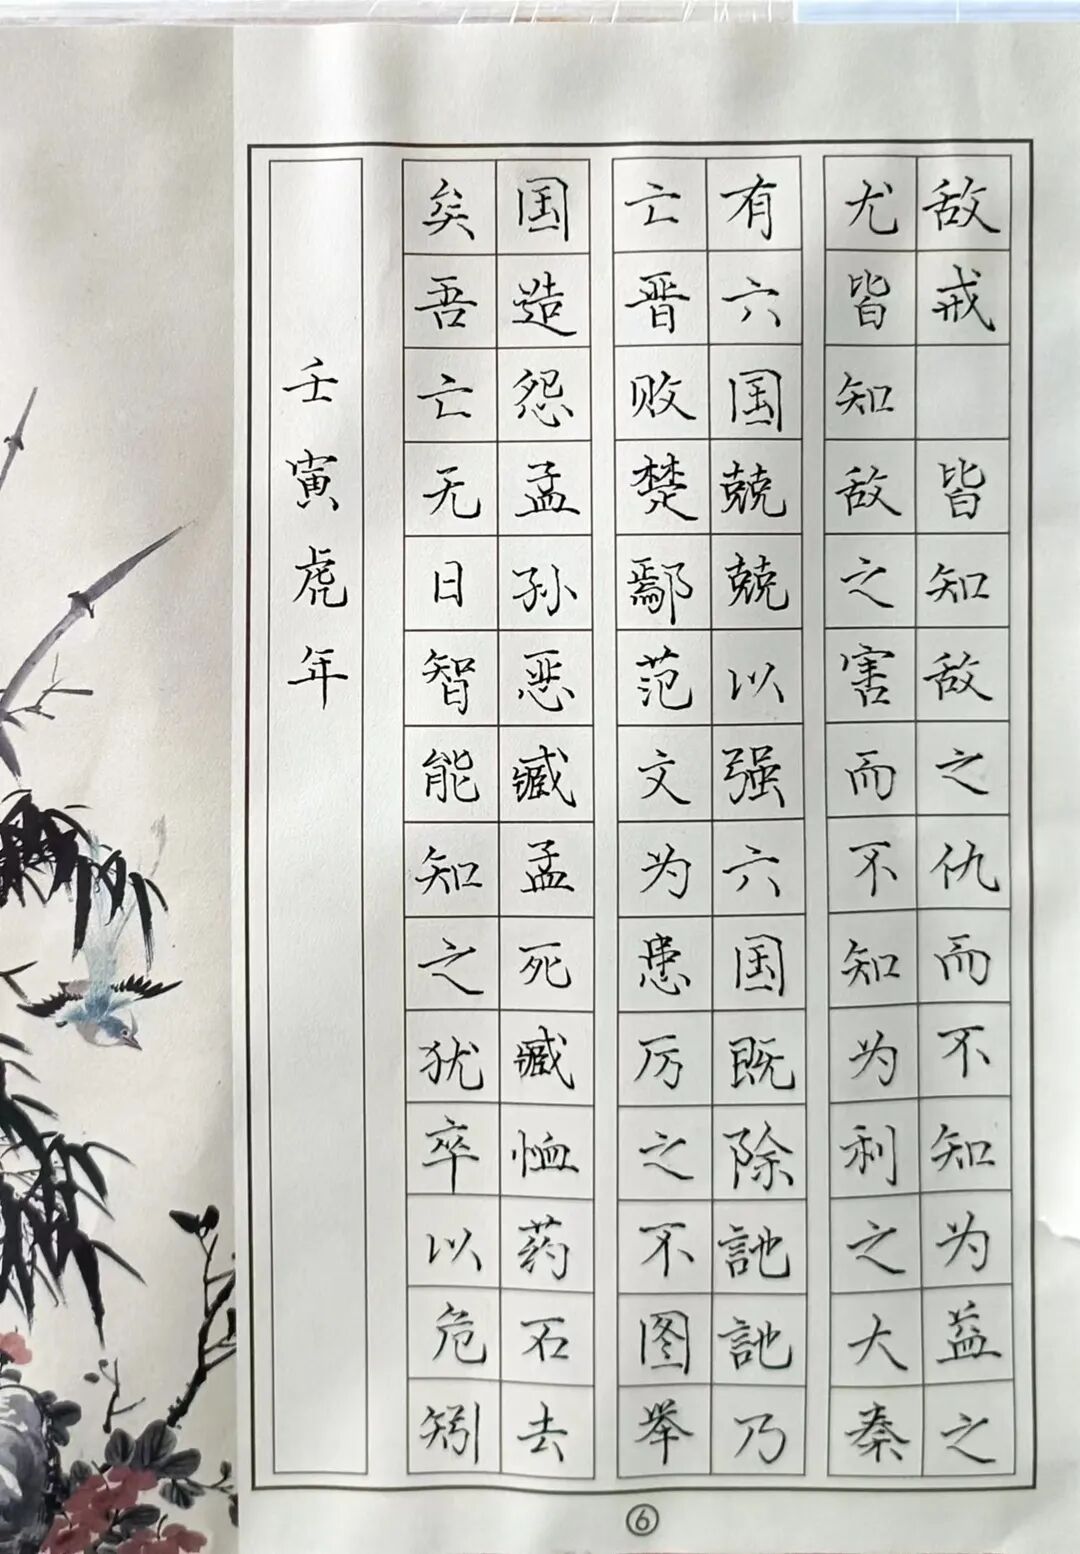 敌戒 皆知敌之仇而不知为益之
尤皆知敌之害而不知为利之大秦
有六国兢兢以强六国既除訑訑乃
亡晋败楚鄢范文为患厉之不图举
国造怨孟孙恶臧孟死臧恤药石去
矣吾亡无日智能知之犹卒以危矧
壬寅虎年
⑥